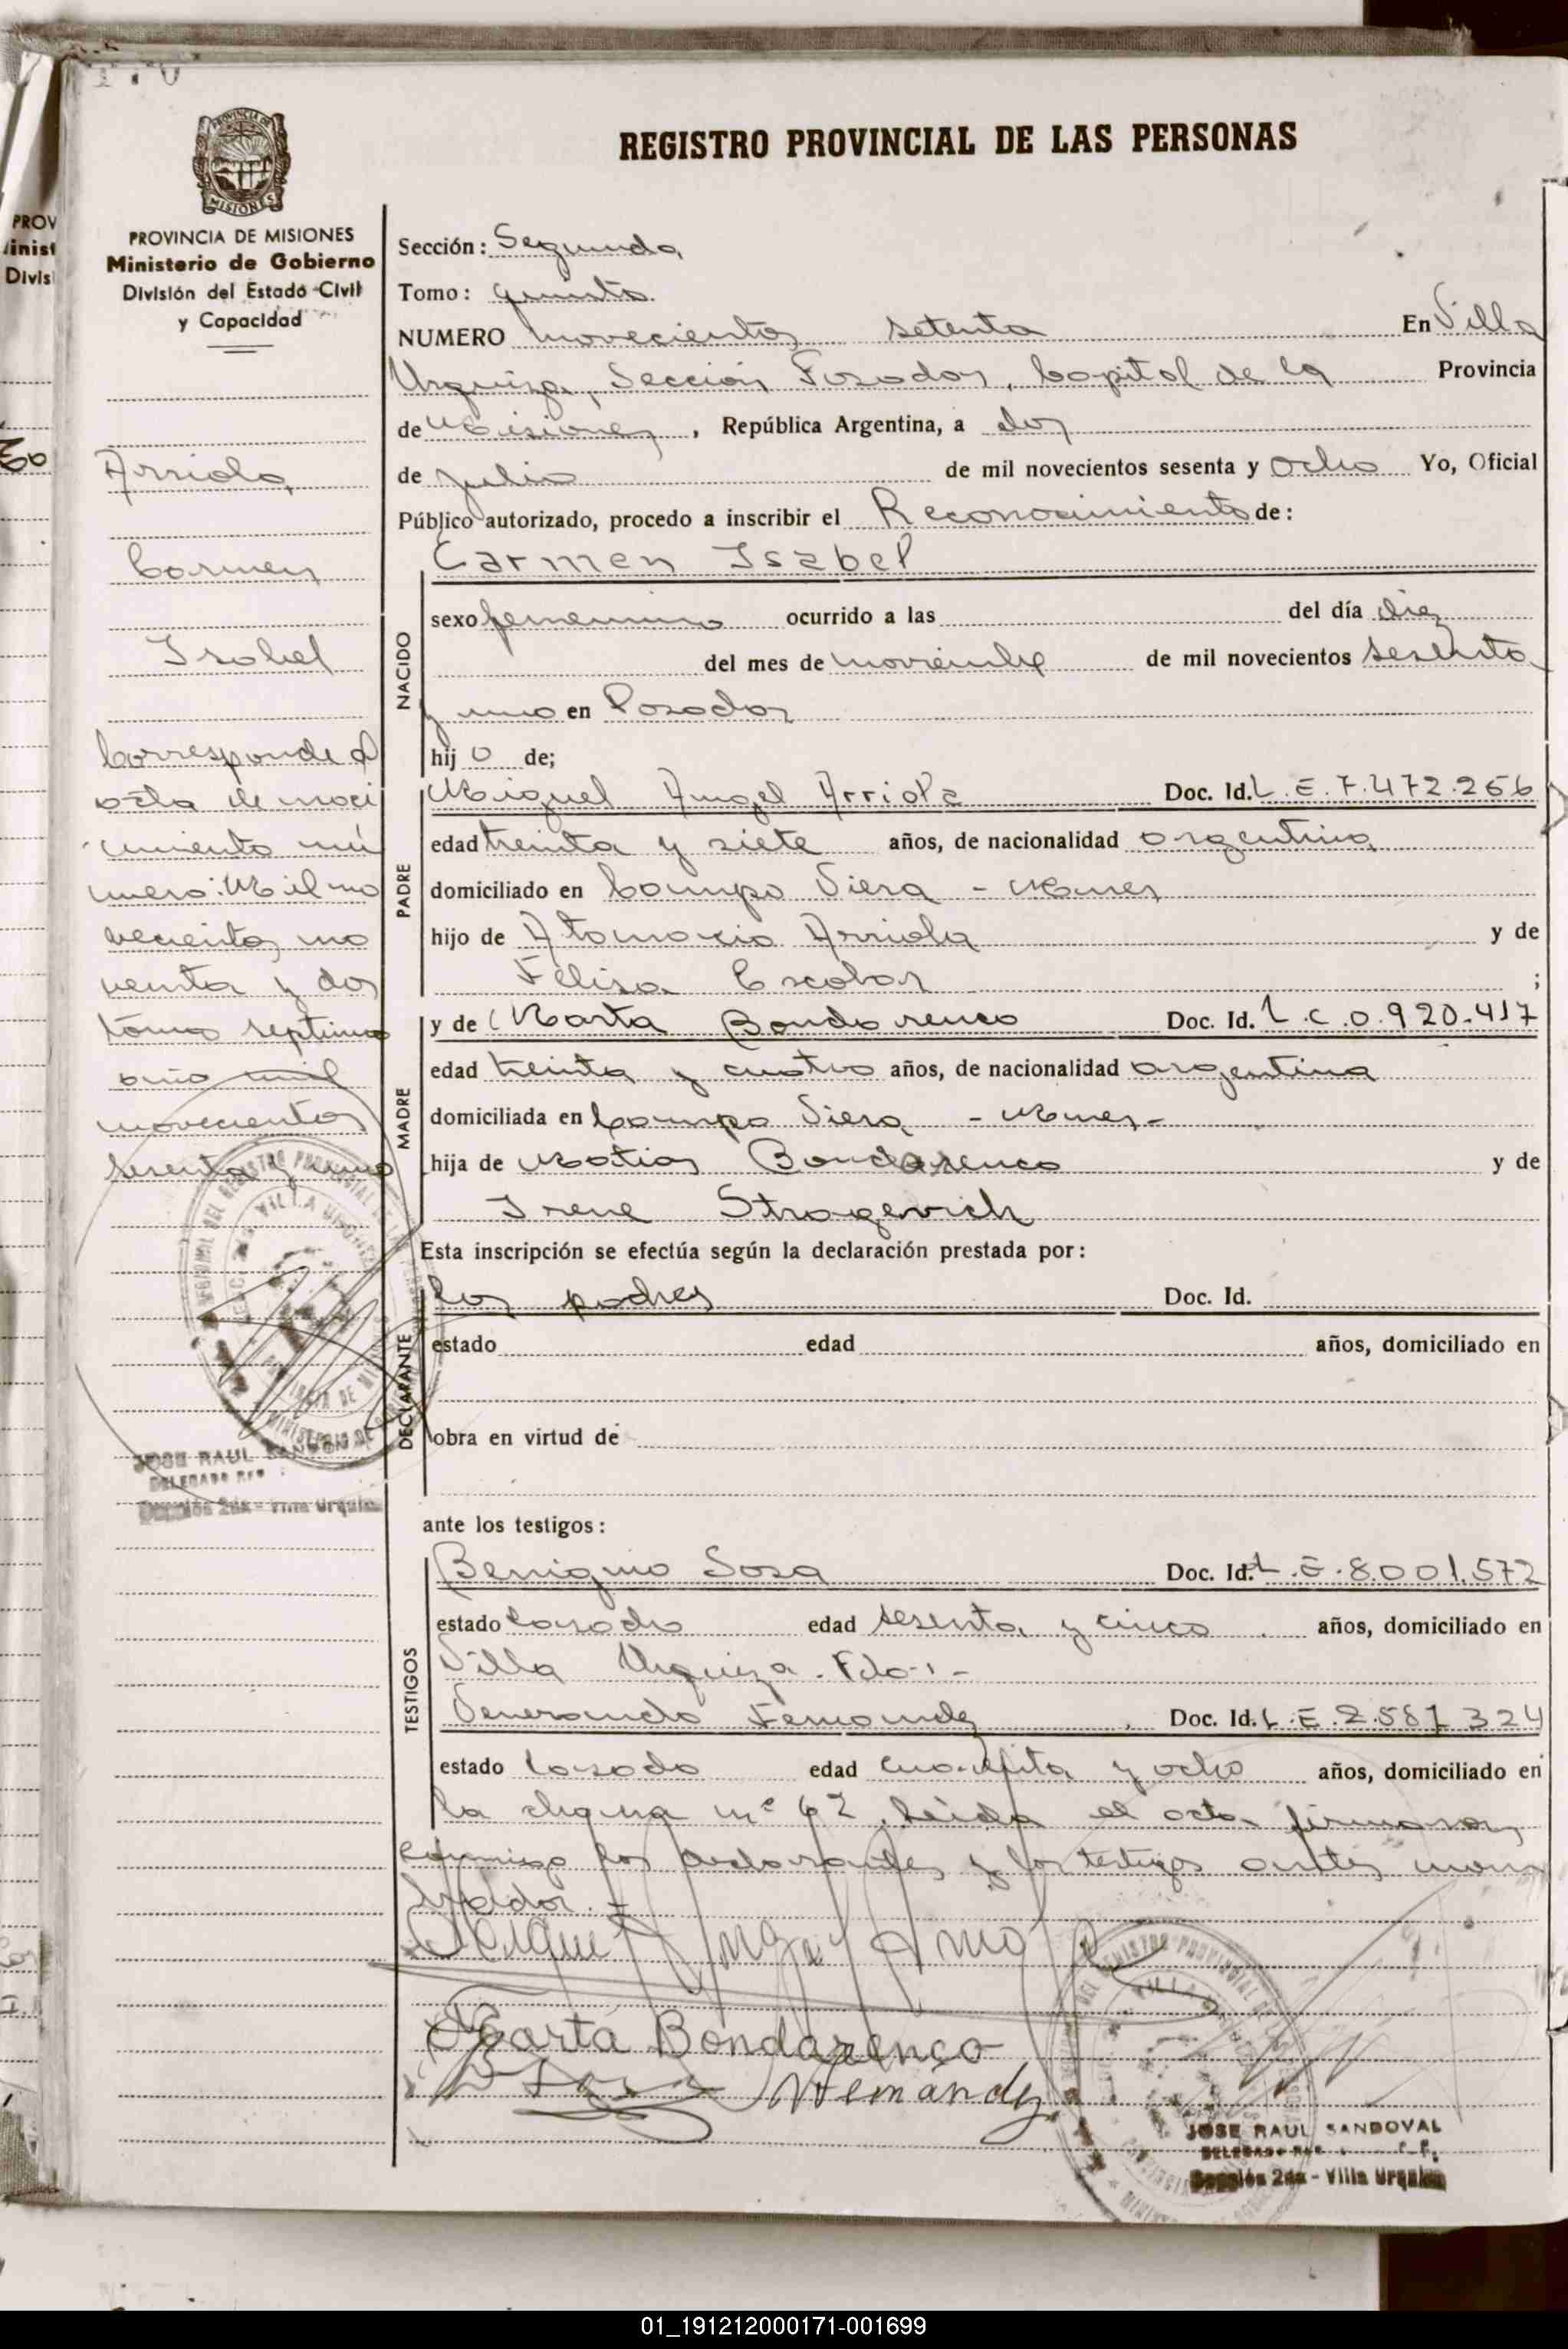 REGISTRO PROVINCIAL DE LAS PERSONAS
PROVINCIA DE MISIONES
Ministerio de Gobierno
División del Estado Civil
y Capacidad
Arriola
Carmen
Isabel
Corresponde al
acta de naci
miento nú
mero: Mil no
vecientos no
venta y dos
tomo septimo
año mil
novecientos
sesenta y uno
JOSE RAUL SANDOVAL
Sección 2da - Villa Urquiza
Sección: Segunda
Tomo: quinto
NUMERO novecientos setenta En Villa
Urquiza, Sección Posadas, Capital de la Provincia
de Misiones, República Argentina, a dos
de julio de mil novecientos sesenta y ocho Yo, Oficial
Público autorizado, procedo a inscribir el Reconocimiento de:
NACIDO
Carmen Isabel
sexo femenino ocurrido a las del día diez
del mes de noviembre de mil novecientos sesenta
y uno en Posadas
hij a de;
PADRE
Miguel Angel Arriola Doc. Id. L.E. 7.472.256
edad treinta y siete años, de nacionalidad argentina
domiciliado en Campo Viera - Mnes
hijo de Atanacio Arriola y de
Felisa Escobar ;
MADRE
y de Marta Bondarenco Doc. Id. L.C. 0.920.417
edad treinta y cuatro años, de nacionalidad argentina
domiciliada en Campo Viera - Mnes-
hija de Matias Bondarenco y de
Irene Strogevich
Esta inscripción se efectúa según la declaración prestada por:
DECLARANTE
los padres Doc. Id.
estado edad años, domiciliado en
obra en virtud de
ante los testigos:
TESTIGOS
Benigno Sosa Doc. Id. L.E. 8.001.572
estado casado edad sesenta y cinco años, domiciliado en
Villa Urquiza.
Venerando Fernandez Doc. Id. L.E. 2.581.324
estado casado edad cuarenta y ocho años, domiciliado en
la chacra nº 62. leida el acta firmaron
conmigo los declarantes y los testigos antes mencio
nados. =
Miguel Angel
Marta Bondarenco
B Sosa VFernández
JOSE RAUL SANDOVAL
Sección 2da - Villa Urquiza
01_191212000171-001699